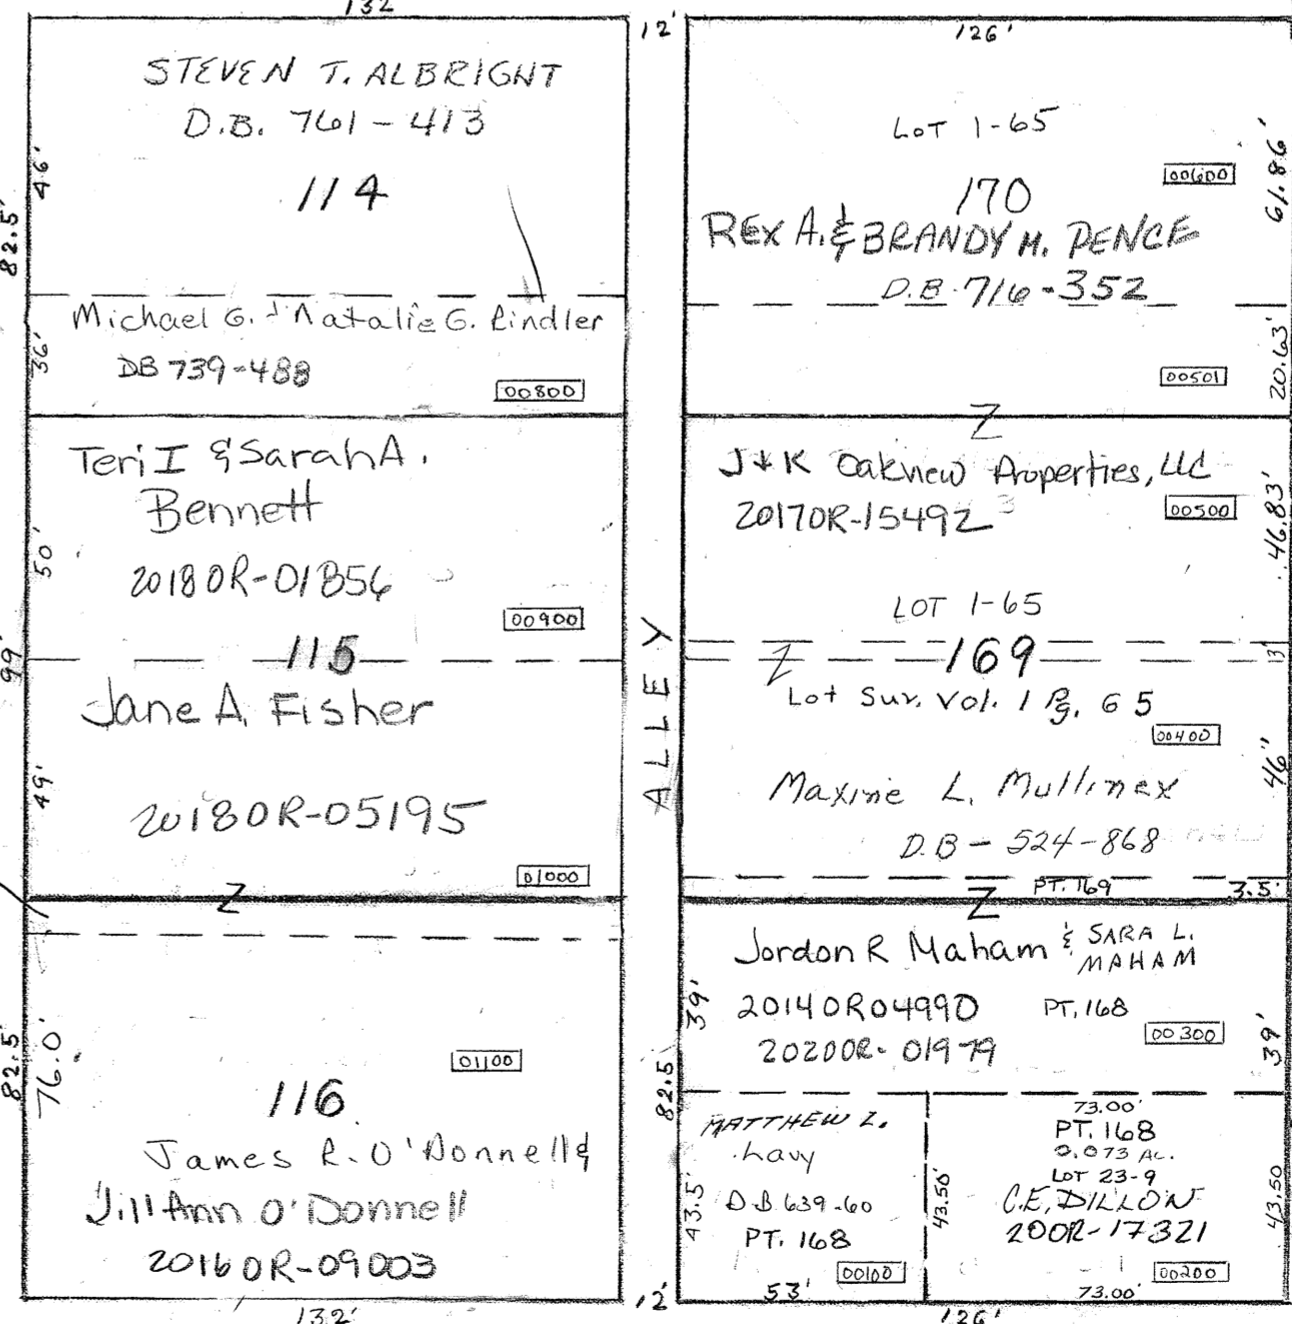 132
STEVEN T. ALBRIGHT
D.B. 761-413
114
46'
82.5'
Michael G. & Natalie G. Rindler
DB 739-488
36'
00800
Teri I & Sarah A.
Bennett
2018OR-01856
50'
00900
115
99'
Jane A. Fisher
49'
2018OR-05195
01000
Z
82.5'
76.0'
01100
116
James R. O'Donnell &
Jill Ann O'Donnell
2016OR-09003
132'
12'
ALLEY
12'
126'
LOT 1-65
00600
170
61.86'
REX A. & BRANDY M. PENCE
D.B. 716-352
00501
20.63'
Z
J & K Oakview Properties, LLC
2017OR-15492
00500
46.83'
LOT 1-65
169
Z
13'
Lot Sur. Vol. 1 Pg. 65
00400
46"
Maxine L. Mullinex
D.B - 524-868
PT. 169
3.5'
Z
Jordon R Maham & SARA L.
MAHAM
39'
2014OR04990
PT. 168
2020OR-01979
00300
39'
82.5
MATTHEW L.
Lavy
D.B. 639-60
PT. 168
43.5'
00100
53'
43.50'
73.00'
PT. 168
0.073 AC.
LOT 23-9
C.E. DILLON
200R-17321
43.50
00200
73.00'
126'